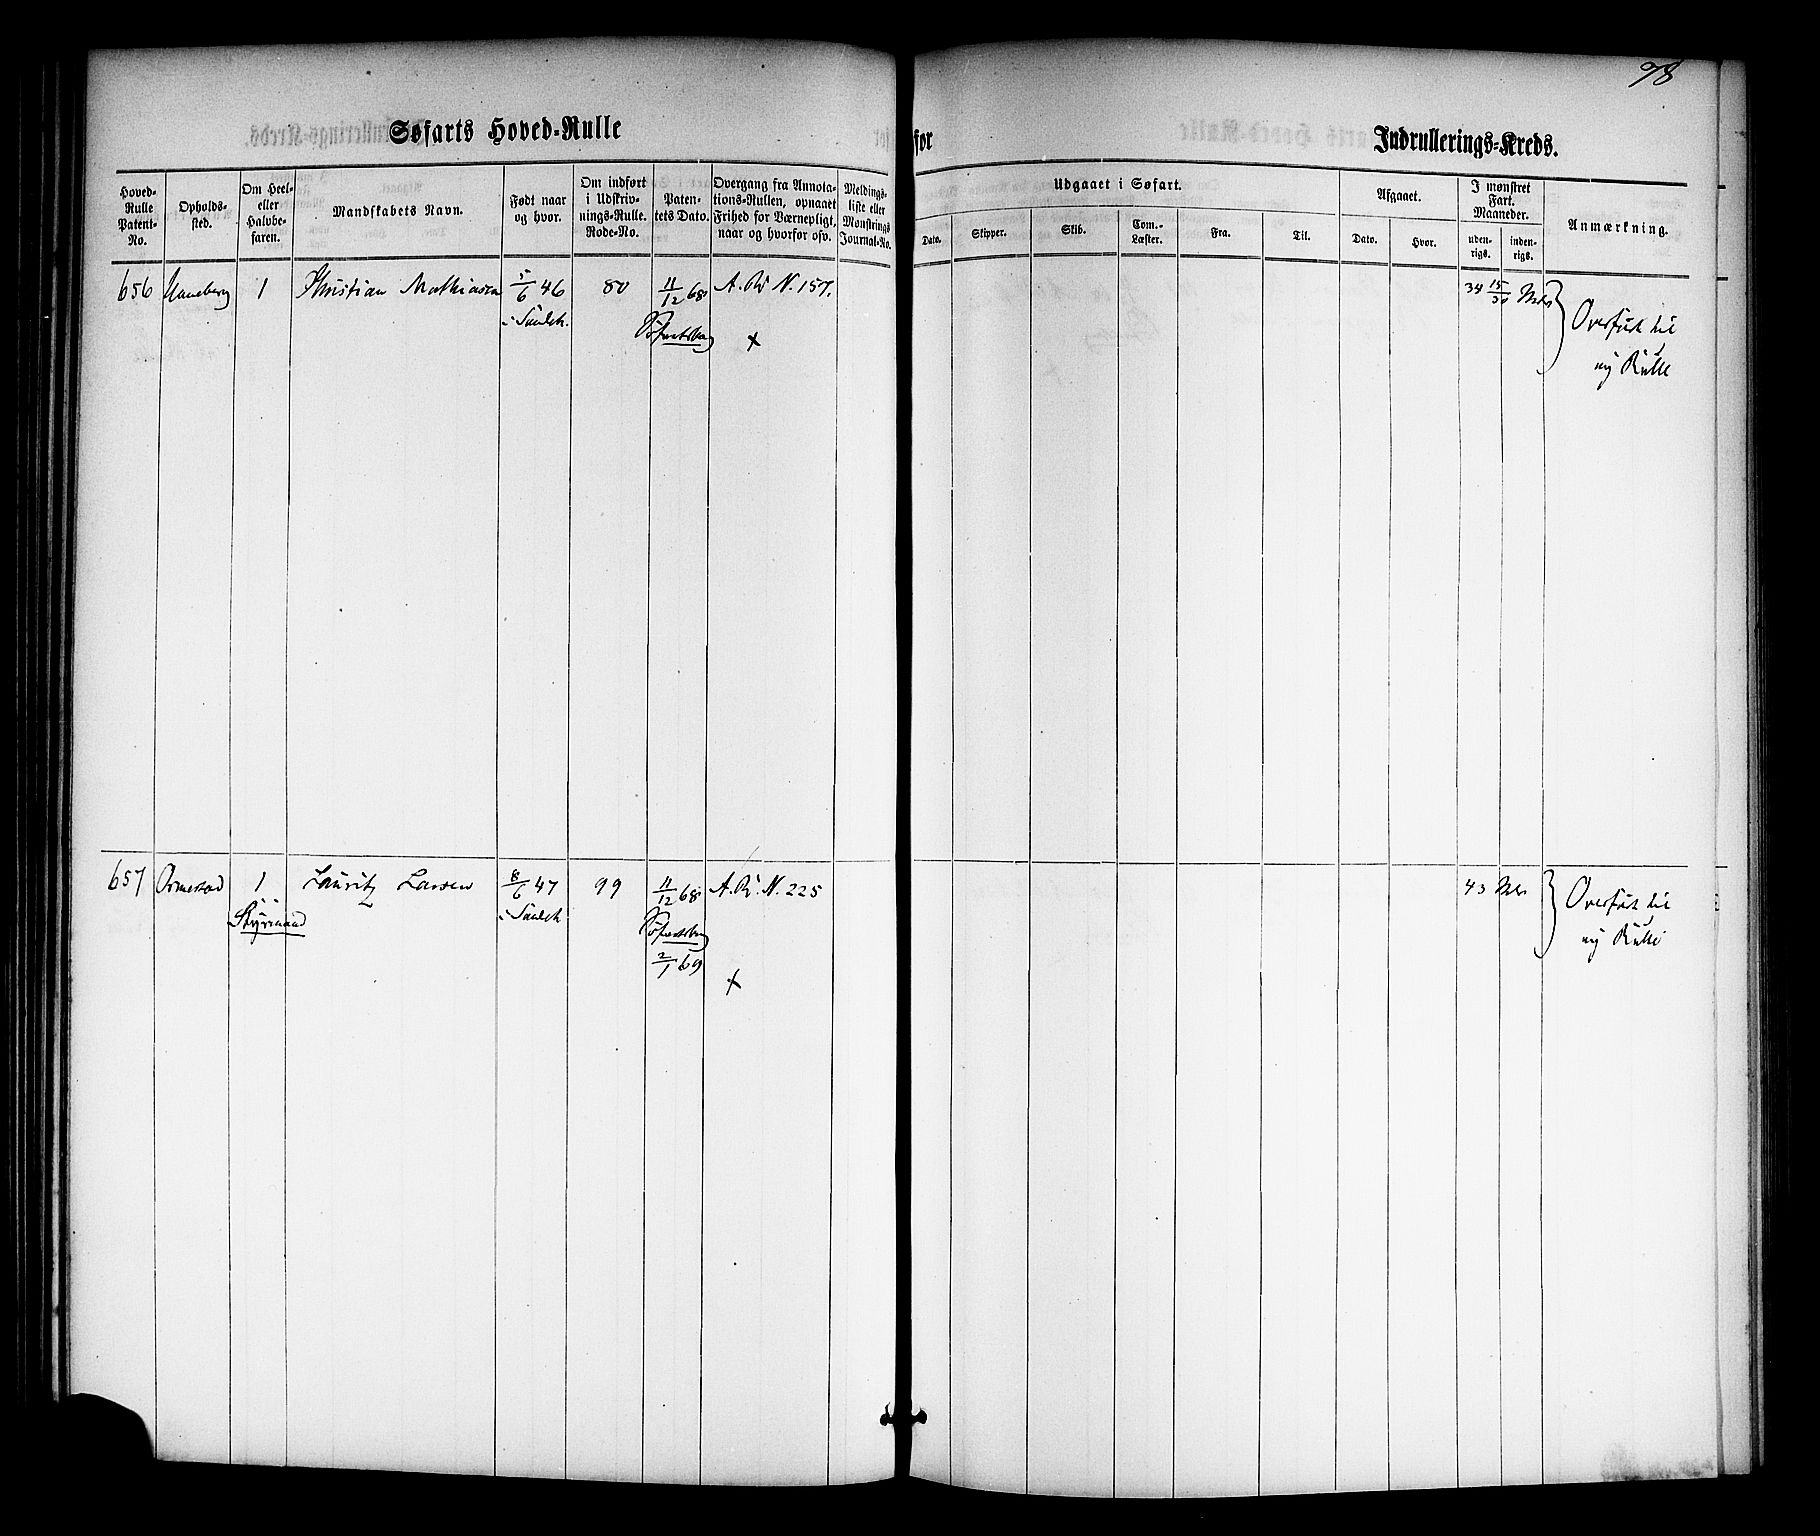 78
Søfarts Hoved-Rulle
for
Indrullerings-Kreds.
Hoved-
Rulle
Patent-
No.
Opholds-
sted.
Om Heel-
eller
Halvbe-
faren.
Mandskabets Navn.
Født naar
og hvor.
Om indført
i Udskriv-
nings-Rulle.
Rode-No.
Paten-
tets Dato.
Overgang fra Annota-
tions-Rullen, opnaaet
Frihed for Værnepligt,
naar og hvorfor osv.
Meldings-
liste eller
Mønstrings
Journal-No.
Udgaaet i Søfart.
Dato.
Skipper.
Skib.
Com.-
Læster.
Fra.
Til.
Afgaaet.
Dato.
Hvor.
I mønstret
Fart.
Maaneder.
uden-
rigs.
inden-
rigs.
Anmærkning.
656 1 Christian Mathiasen 5/6 46 80 11/12 68 A. R. N. 157. 34 15/30 Mdr Overført til
i Sandeh.
ny Rulle
+
657 Ormestad 1 Lauritz Larsen 8/6 47 99 11/12 68 A. R. N. 225 43 Mdr Overført til
Styrmand i Sandeh
ny Rulle
2/1 69
+